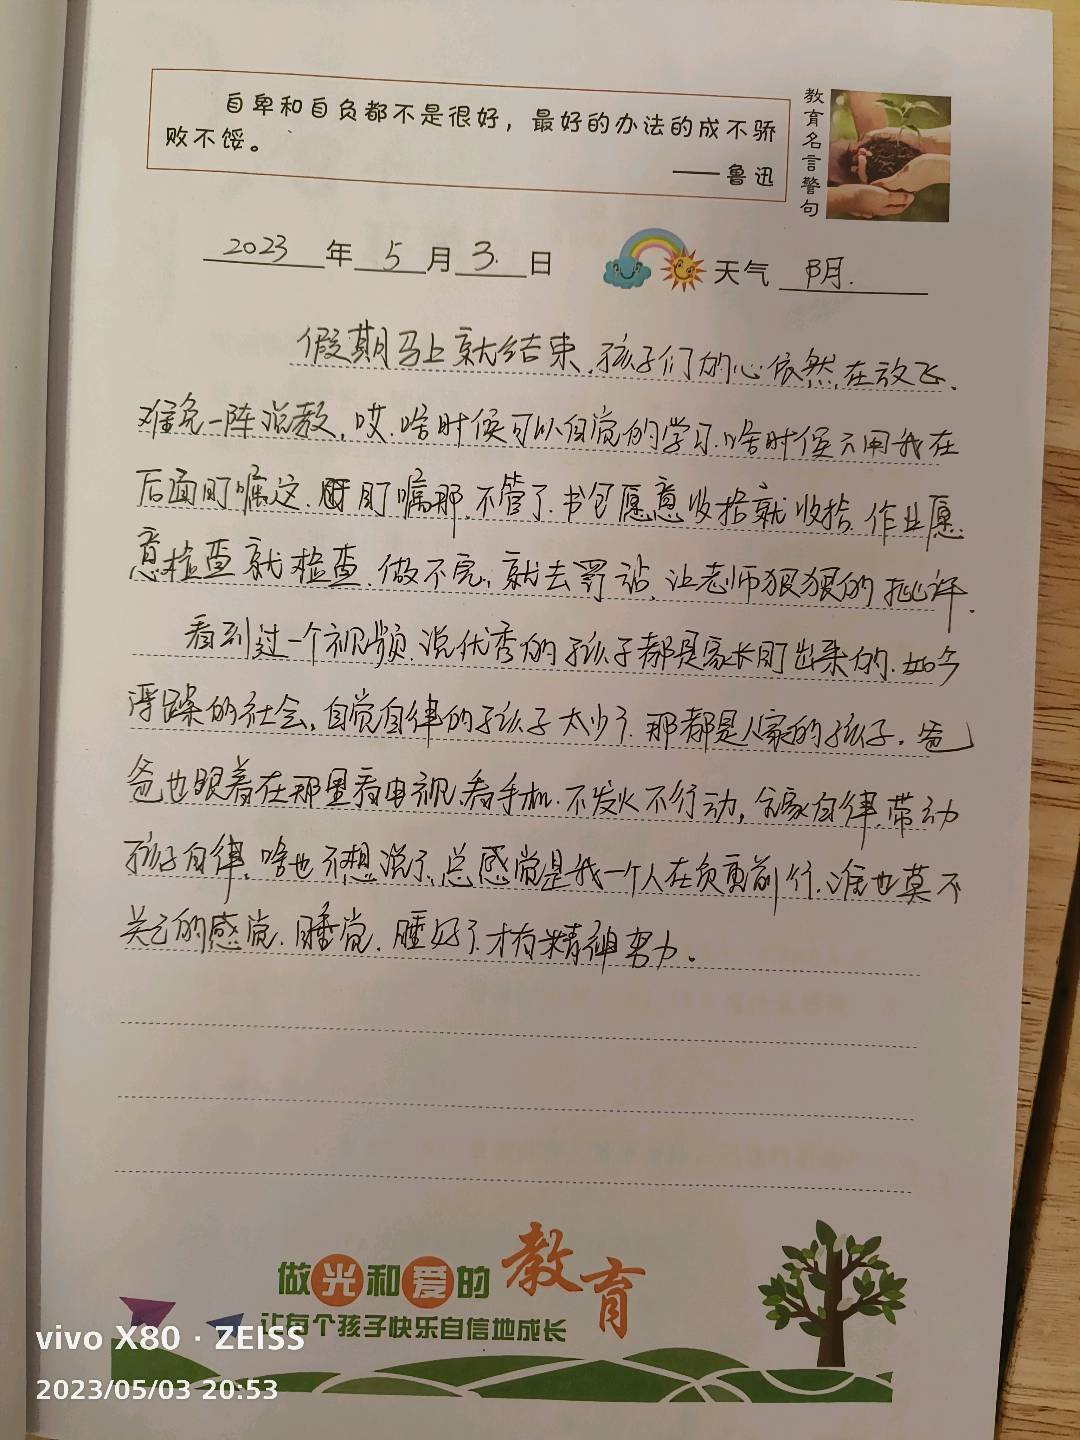 自卑和自负都不是很好，最好的办法的成不骄
败不馁。
——鲁迅
教育名言警句
2023年5月3.日
天气 阴.
假期马上就结束.孩子们的心依然在放飞.
难免一阵说教,哎.啥时候可以自觉的学习.啥时候不用我在
后面盯嘱这.盯嘱那.不管了.书包愿意收拾就收拾.作业愿
意检查就检查.做不完,就去罚站.让老师狠狠的批评.
看到过一个视频.说优秀的孩子都是家长盯出来的.如今
浮躁的社会,自觉自律的孩子太少了.那都是人家的孩子.爸
爸也跟着在那里看电视.看手机.不发火不行动,全家自律.带动
孩子自律.啥也不想说了.总感觉是我一个人在负重前行.谁也莫不
关己的感觉.睡觉.睡好了才有精神努力。
做光和爱的教育
让每个孩子快乐自信地成长
vivo X80 · ZEISS
2023/05/03 20:53